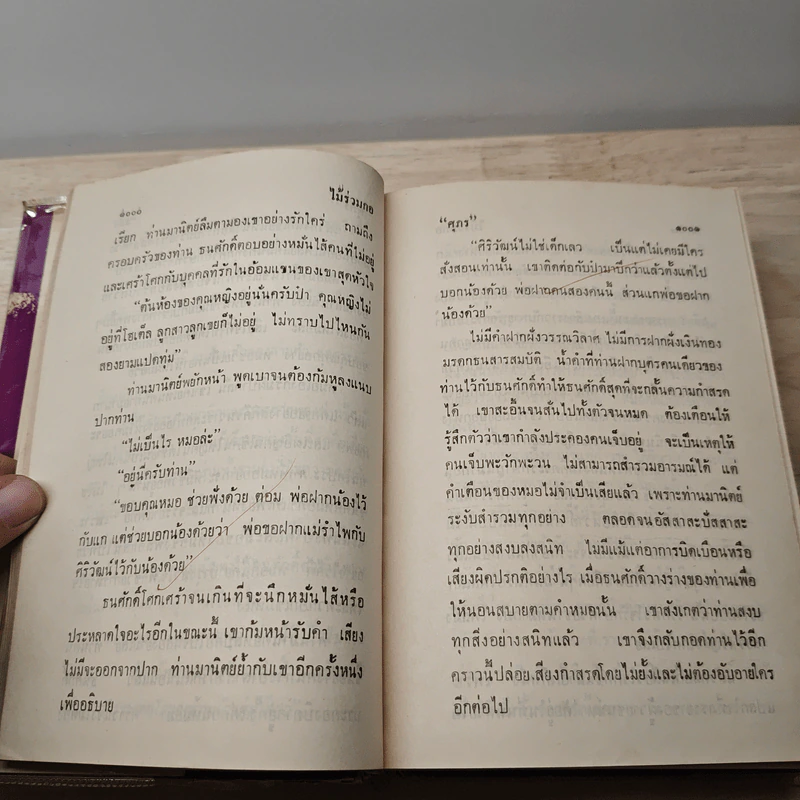 ๑๐๐๐
ไม้ร่วมกอ
เรียก ท่านมานิตย์ลืมตามองเขาอย่างรักใคร่ ถามถึง
ครอบครัวของท่าน ธนศักดิ์ตอบอย่างหมั่นไส้คนที่ไม่อยู่
และเศร้าโศกกับบุคคลที่รักในอ้อมแขนของเขาสุดหัวใจ
“ต้นห้องของคุณหญิงอยู่นั่นครับป๋า คุณหญิงไม่
อยู่ที่โฮเต็ล ลูกสาวลูกเขยก็ไม่อยู่ ไม่ทราบไปไหนกัน
สองยามแปดทุ่ม”
ท่านมานิตย์พยักหน้า พูดเบาจนต้องก้มหูลงแนบ
ปากท่าน
“ไม่เป็นไร หมอล่ะ”
“อยู่นี่ครับท่าน”
“ขอบคุณหมอ ช่วยฟังด้วย ต่อม พ่อฝากน้องไว้
กับแก แต่ช่วยบอกน้องด้วยว่า พ่อขอฝากแม่รำไพกับ
ศิริวัฒน์ไว้กับน้องด้วย”
ธนศักดิ์โศกเศร้าจนเกินที่จะนึกหมั่นไส้หรือ
ประหลาดใจอะไรอีกในขณะนี้ เขาก้มหน้ารับคำ เสียง
ไม่มีจะออกจากปาก ท่านมานิตย์ย้ำกับเขาอีกครั้งหนึ่ง
เพื่ออธิบาย
“ศุภร”
๑๐๐๑
“ศิริวัฒน์ไม่ใช่เด็กเลว เป็นแต่ไม่เคยมีใคร
สั่งสอนเท่านั้น เขาติดต่อกับป๋ามาปีกว่าแล้วตั้งแต่ไป
บอกน้องด้วย พ่อฝากคนสองคนนี้ ส่วนแกพ่อขอฝาก
น้องด้วย”
ไม่มีคำฝากฝังวรรณวิลาศ ไม่มีการฝากฝังเงินทอง
มรดกธนสารสมบัติ น้ำคำที่ท่านฝากบุตรคนเดียวของ
ท่านไว้กับธนศักดิ์ทำให้ธนศักดิ์สุดที่จะกลั้นความกำสรด
ได้ เขาสะอื้นจนสั่นไปทั้งตัวจนหมด ต้องเตือนให้
รู้สึกตัวว่าเขากำลังประคองคนเจ็บอยู่ จะเป็นเหตุให้
คนเจ็บพะวักพะวน ไม่สามารถสำรวมอารมณ์ได้ แต่
คำเตือนของหมอไม่จำเป็นเสียแล้ว เพราะท่านมานิตย์
ระงับสำรวมทุกอย่าง ตลอดจนอัสสาสะปัสสาสะ
ทุกอย่างสงบลงสนิท ไม่มีแม้แต่อาการบิดเบือนหรือ
เสียงผิดปรกติอย่างไร เมื่อธนศักดิ์วางร่างของท่านเพื่อ
ให้นอนสบายตามคำหมอนั้น เขาสังเกตว่าท่านสงบ
ทุกสิ่งอย่างสนิทแล้ว เขาจึงกลับกอดท่านไว้อีก
คราวนี้ปล่อยเสียงกำสรดโดยไม่ยั้งและไม่ต้องอับอายใคร
อีกต่อไป